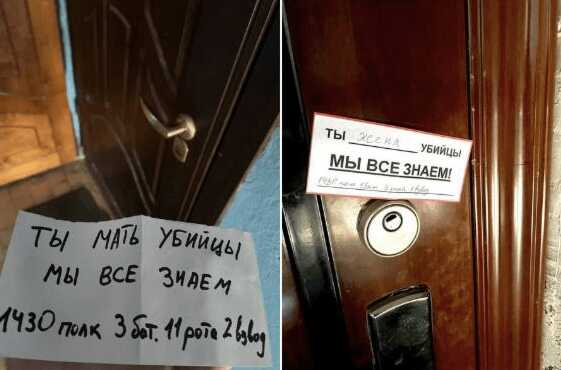 ТЫ МАТЬ УБИЙЦЫ
МЫ ВСЕ ЗНАЕМ
1430 полк 3 бат. 11 рота 2 взвод
ТЫ жена УБИЙЦЫ
МЫ ВСЕ ЗНАЕМ!